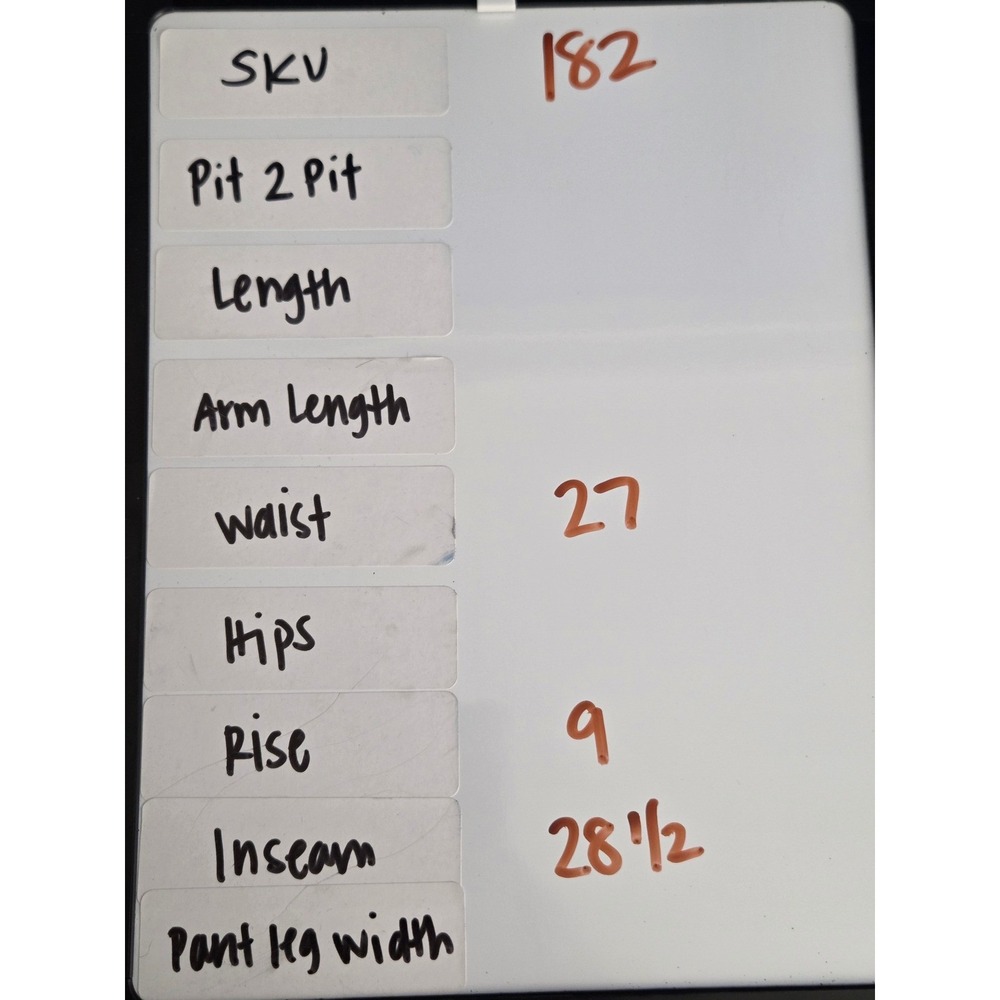 SKU 182
Pit 2 Pit
Length
Arm Length
Waist 27
Hips
Rise 9
Inseam 28 1/2
Pant leg width